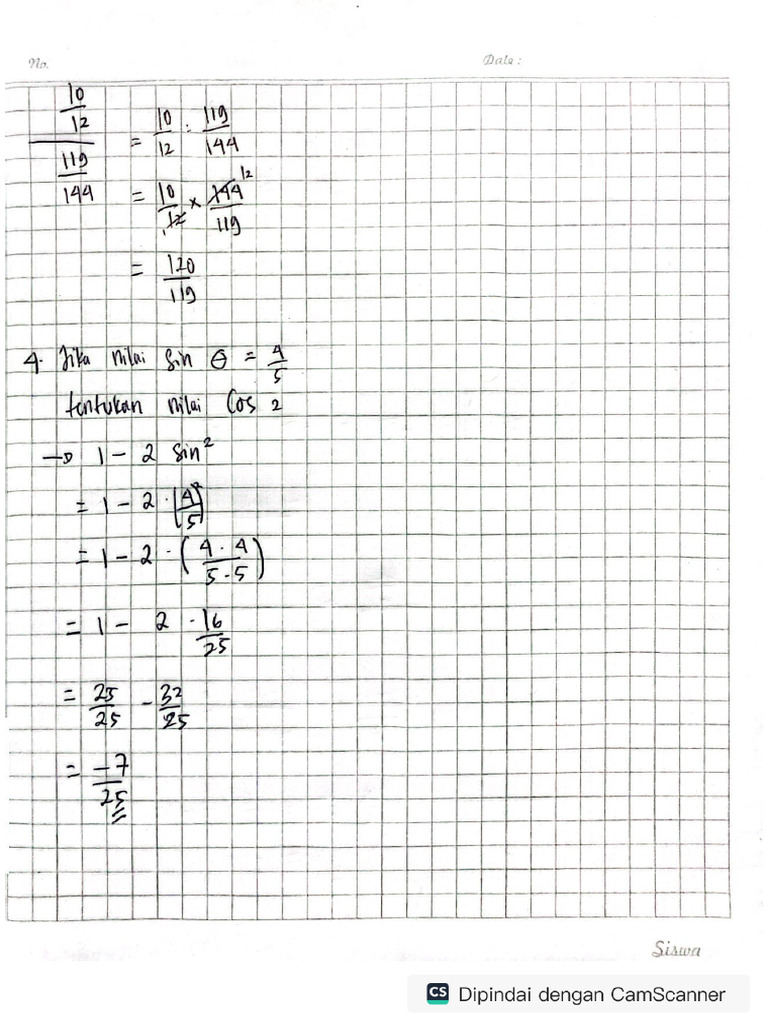 No.
Date:
10/12 / 119/144 = 10/12 : 119/144
= 10/12 × 144/119 12
= 120/119
4. Jika nilai sin θ = 4/5
tentukan nilai Cos 2
→ 1 - 2 sin²
= 1 - 2 · (4/5)²
= 1 - 2 · (4 · 4 / 5 · 5)
= 1 - 2 · 16/25
= 25/25 - 32/25
= -7/25
Siswa
CS Dipindai dengan CamScanner